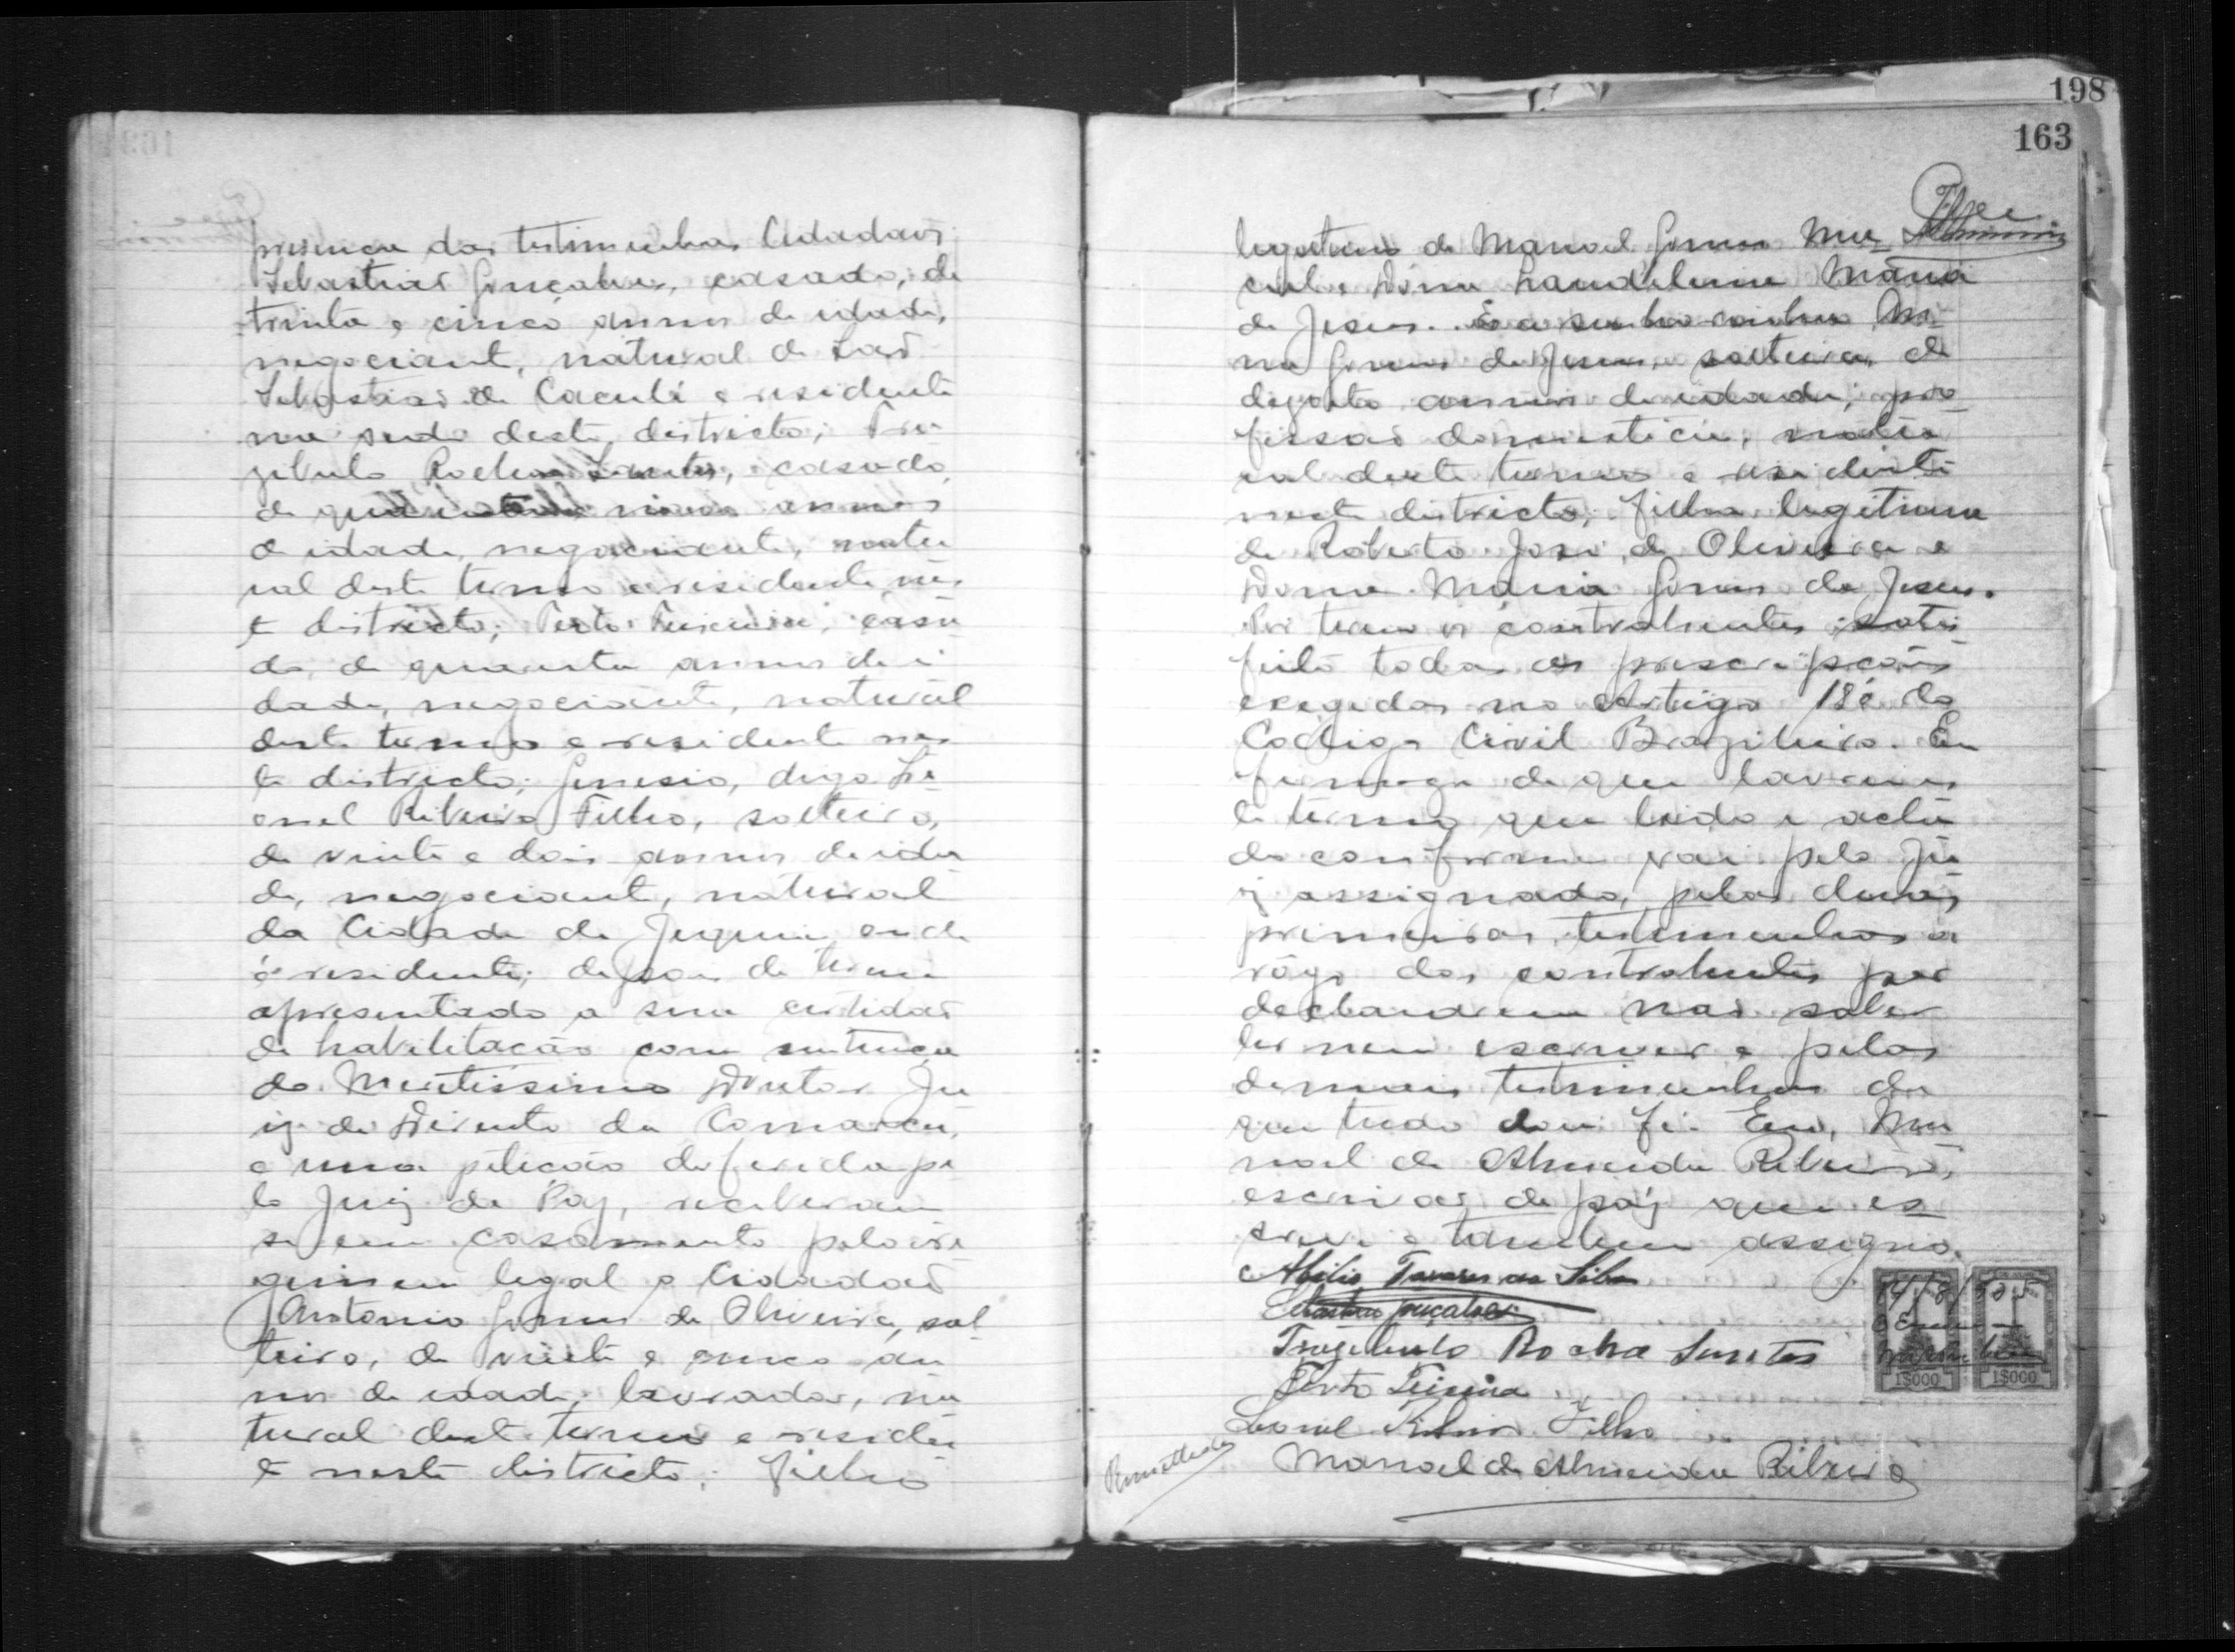 presença das testimunhas Cidadaõs
Sebastiaõ Gonçalves, casado, de
trinta e cinco annos de idade,
negociante, natural de Saõ
Sebastiaõ de Caculé e residente
na sede deste districto;
Rocha Santos, casado,
de nove annos
de idade, negociante, natu
ral deste termo e residente nes
te districto; Porto Teixeira, casa
do, de quarenta annos de i
dade, negociante, natural
deste termo e residente nes
te districto; Genesio, digo Le
onel Ribeiro Filho, solteiro,
de vinte e dois annos de ida
de, negociante, natural
da Cidade de Jequié onde
é residente; depois de terem
apresentado a sua certidaõ
de habilitação com sentença
do Meritissimo Doutor Ju
iz de Direito da Comarca,
e uma petição deferida pe
lo Juiz de Paz, receberam
se em casamento pelo re
gimem legal o Cidadaõ
Antonio Gomes de Oliveira, sol
teiro, de vinte e cinco an
nos de idade, lavrador, na
tural deste termo e residen
te neste districto; filho
198
163
legitimo de Manoel Gomes
e Dona Laudelina Maria
de Jesus. E a senhorinha
Gomes de Jesus, solteira, de
dezoito annos de idade, pro
fissaõ domestica, natu
ral deste termo e residente
neste districto, filha legitima
de Roberto José de Oliveira e
Dona Maria Gomes de Jesus.
Por terem os contrahentes satis
feito todas as prescripções
exegidas no Artigo 180 do
Codigo Civil Brazileiro. Em
firmeza de que lavrei es
te termo que lido e acha
do conforme vai pelo Ju
iz assignado, pelas duas
primeiras testemunhas a
rôgo dos contrahentes por
declararem naõ saber
ler nem escrever e pelas
demais testimunhas do
que tudo dou fé. Eu, Ma
noel de Almeida Ribeiro,
escrivaõ de páz que es
crevi e tambem assigno.
Abilio Tavares da Silva
Sebastião Gonçalves
Rocha Santos
Porto Teixeira
Leonel Ribeiro Filho
Manoel de Almeida Ribeiro
Remettido
14/8/
1$000 1$000